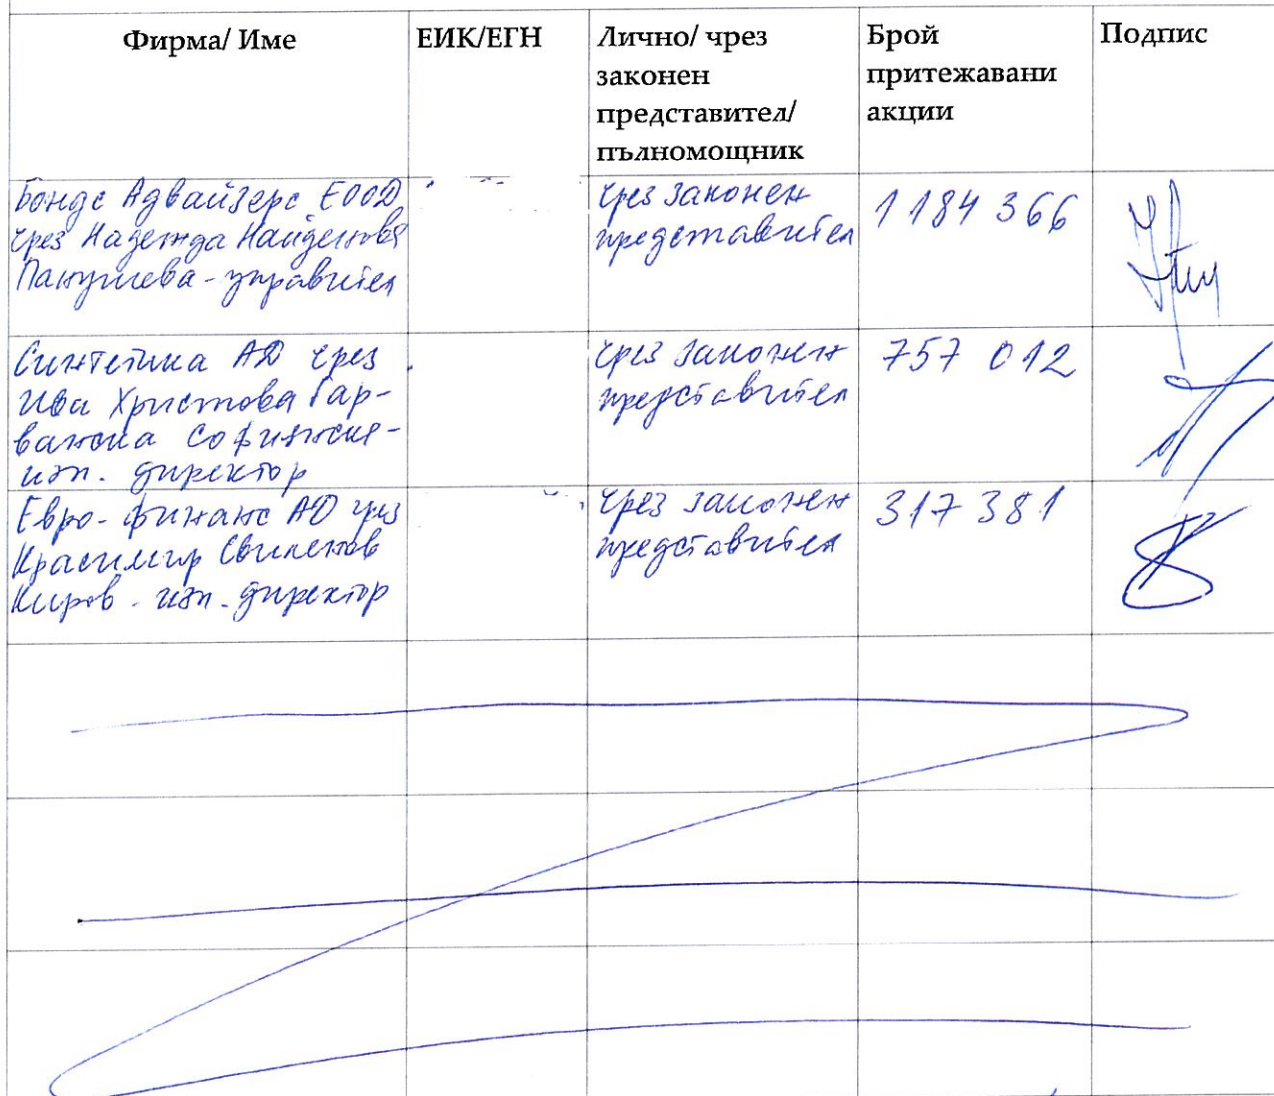 Фирма/ Име ЕИК/ЕГН Лично/ чрез Брой Подпис
законен притежавани
представител/ акции
пълномощник
Бондс Адвайзерс ЕООД
чрез Надежда Найденова
Панушева - управител
чрез законен
представител
1 184 366
Синтетика АД чрез
Ива Христова Гар-
ванска Софиянска -
изп. директор
чрез законен
представител
757 012
Евро-финанс АД чрез
Красимир Свиленов
Киров - изп. директор
чрез законен
представител
317 381